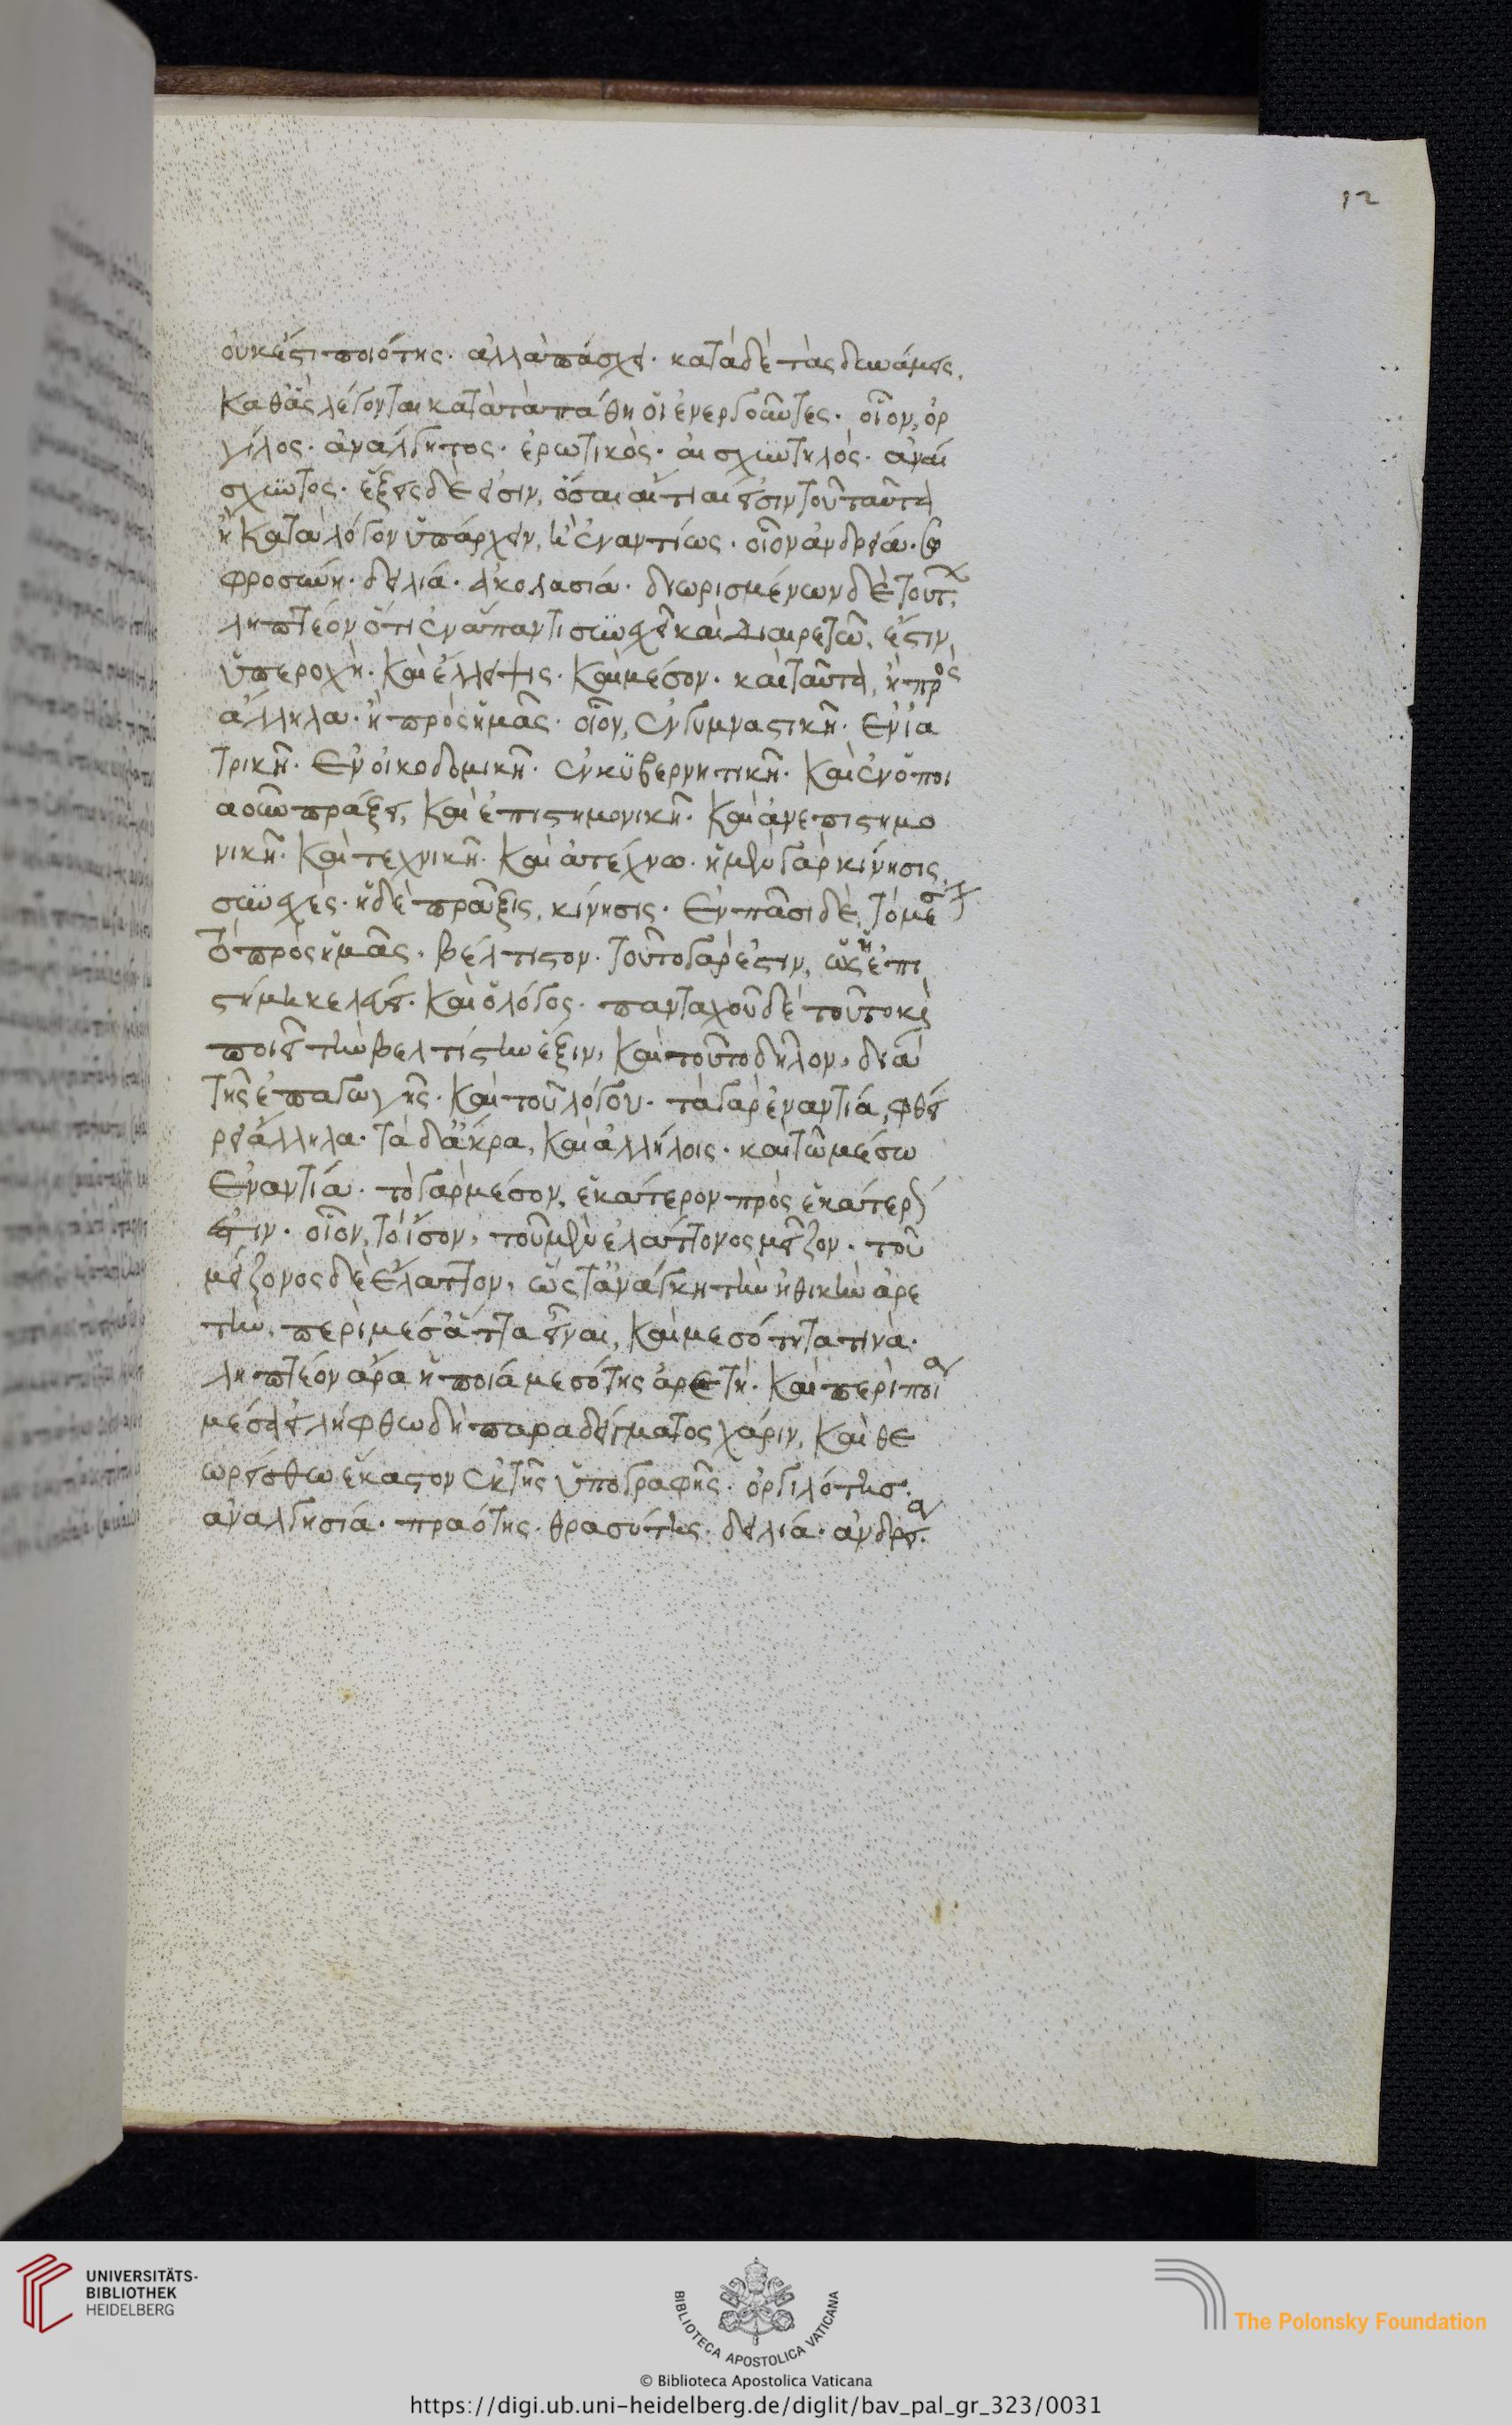 12
οὐκέτι ποιότης· ἀλλὰ πάσχει· κατὰ δὲ τὰς δυνάμεις,
καθ' ἃς λέγονται κατὰ τὰ πάθη οἱ ἐνεργοῦντες· οἷον, ὀρ
γίλος· ἀνάλγητος· ἐρωτικὸς· αἰσχυντηλὸς· ἀναί
σχυντος· ἕξεις δέ εἰσιν, ὅσαι αἴτιαί εἰσιν τοῦ ταῦτα
ἢ κατὰ λόγον ὑπάρχειν, ἢ ἐναντίως· οἷον ἀνδρεία· σω
φροσύνη· δειλία· ἀκολασία· διωρισμένων δὲ τούτων,
ληπτέον ὅτι ἐν ἅπαντι συνεχεῖ καὶ διαιρετῶ, ἐστιν
ὑπεροχὴ· καὶ ἔλλειψις· καὶ μέσον· καὶ ταῦτα, ἢ πρὸς
ἄλληλα· ἢ πρὸς ἡμᾶς· οἷον, ἐν γυμναστικῆ· ἐν ἰα
τρικῆ· ἐν οἰκοδομικῆ· ἐν κυβερνητικῆ· καὶ ἐν ὁποι
αοῦν πράξει, καὶ ἐπιστημονικῆ· καὶ ἀνεπιστημο
νικῆ· καὶ τεχνικῆ· καὶ ἀτέχνω· ἡ μὲν γὰρ κίνησις,
συνεχές· ἡ δὲ πρᾶξις, κίνησις· ἐν πᾶσι δὲ, τὸ μέσον
τὸ πρὸς ἡμᾶς· βέλτιστον· τοῦτο γὰρ ἐστιν, ὡς ἡ ἐπι
στήμη κελεύει· καὶ ὁ λόγος· πανταχοῦ δὲ τοῦτο καὶ
ποιεῖ τὴν βελτίστην ἕξιν, καὶ τοῦτο δῆλον, διὰ
τῆς ἐπαγωγῆς· καὶ τοῦ λόγου· τὰ γὰρ ἐναντία, φθεί
ρει ἄλληλα· τὰ δ' ἄκρα, καὶ ἀλλήλοις· καὶ τῶ μέσω
ἐναντία· τὸ γὰρ μέσον, ἑκάτερον πρὸς ἑκάτερόν
ἐστιν· οἷον, τὸ ἴσον, τοῦ μὲν ἐλάττονος μεῖζον· τοῦ
μείζονος δὲ ἔλαττον, ὥστ' ἀνάγκη τὴν ἠθικὴν ἀρε
τὴν, περὶ μέσ' ἄττα εἶναι, καὶ μεσότητα τινὰ·
ληπτέον ἄρα ἡ ποία μεσότης ἀρετὴ· καὶ περὶ ποῖα
μέσα εἰλήφθω δὴ παραδείγματος χάριν, καὶ θε
ωρείσθω ἕκαστον ἐκ τῆς ὑπογραφῆς· ὀργιλότης·
ἀναλγησία· πραότης· θρασύτης· δειλία· ἀνδρεία·
UNIVERSITÄTS-
BIBLIOTHEK
HEIDELBERG
BIBLIOTECA APOSTOLICA VATICANA
The Polonsky Foundation
© Biblioteca Apostolica Vaticana
https://digi.ub.uni-heidelberg.de/diglit/bav_pal_gr_323/0031